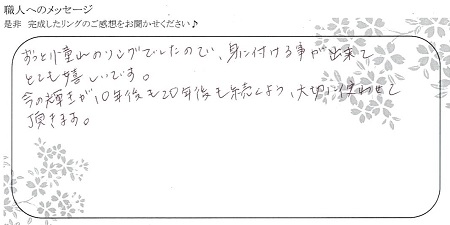 職人へのメッセージ
是非 完成したリングのご感想をお聞かせください♪
ずっと憧れのリングでしたので、身に付ける事が出来て
とても嬉しいです。
今の輝きが、10年後も20年後も続くよう、大切に使わせて
頂きます。